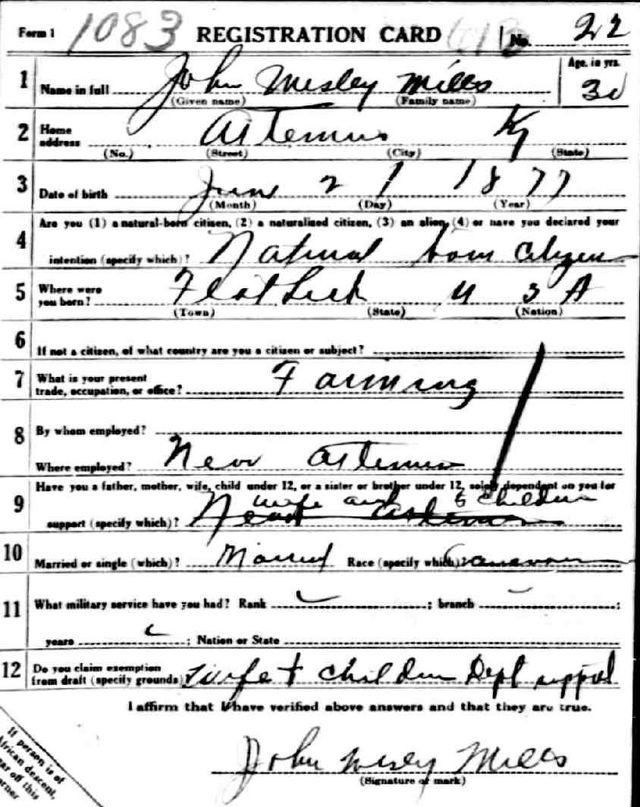 Form 1 1083 REGISTRATION CARD No. 22
1 Name in full John Wesley Mills Age, in yrs.
(Given name) (Family name) 30
2 Home address Artemus Ky
(No.) (Street) (City) (State)
3 Date of birth June 21 1877
(Month) (Day) (Year)
4 Are you (1) a natural-born citizen, (2) a naturalized citizen, (3) an alien, (4) or have you declared your
intention (specify which)? Natural born Citizen
5 Where were you born? Flat Lick U S A
(Town) (State) (Nation)
6 If not a citizen, of what country are you a citizen or subject?
7 What is your present trade, occupation, or office? Farming
8 By whom employed?
Where employed? Near Artemus
9 Have you a father, mother, wife, child under 12, or a sister or brother under 12, solely dependent on you for
wife and 6 children
support (specify which)? Near Artemus
10 Married or single (which)? Married Race (specify which)? Caucasian
11 What military service have you had? Rank ; branch ;
years ; Nation or State
12 Do you claim exemption from draft (specify grounds) Wife + children Dept support
I affirm that I have verified above answers and that they are true.
John Wesly Mills
(Signature or mark)
If person is of
African descent,
tear off this
corner